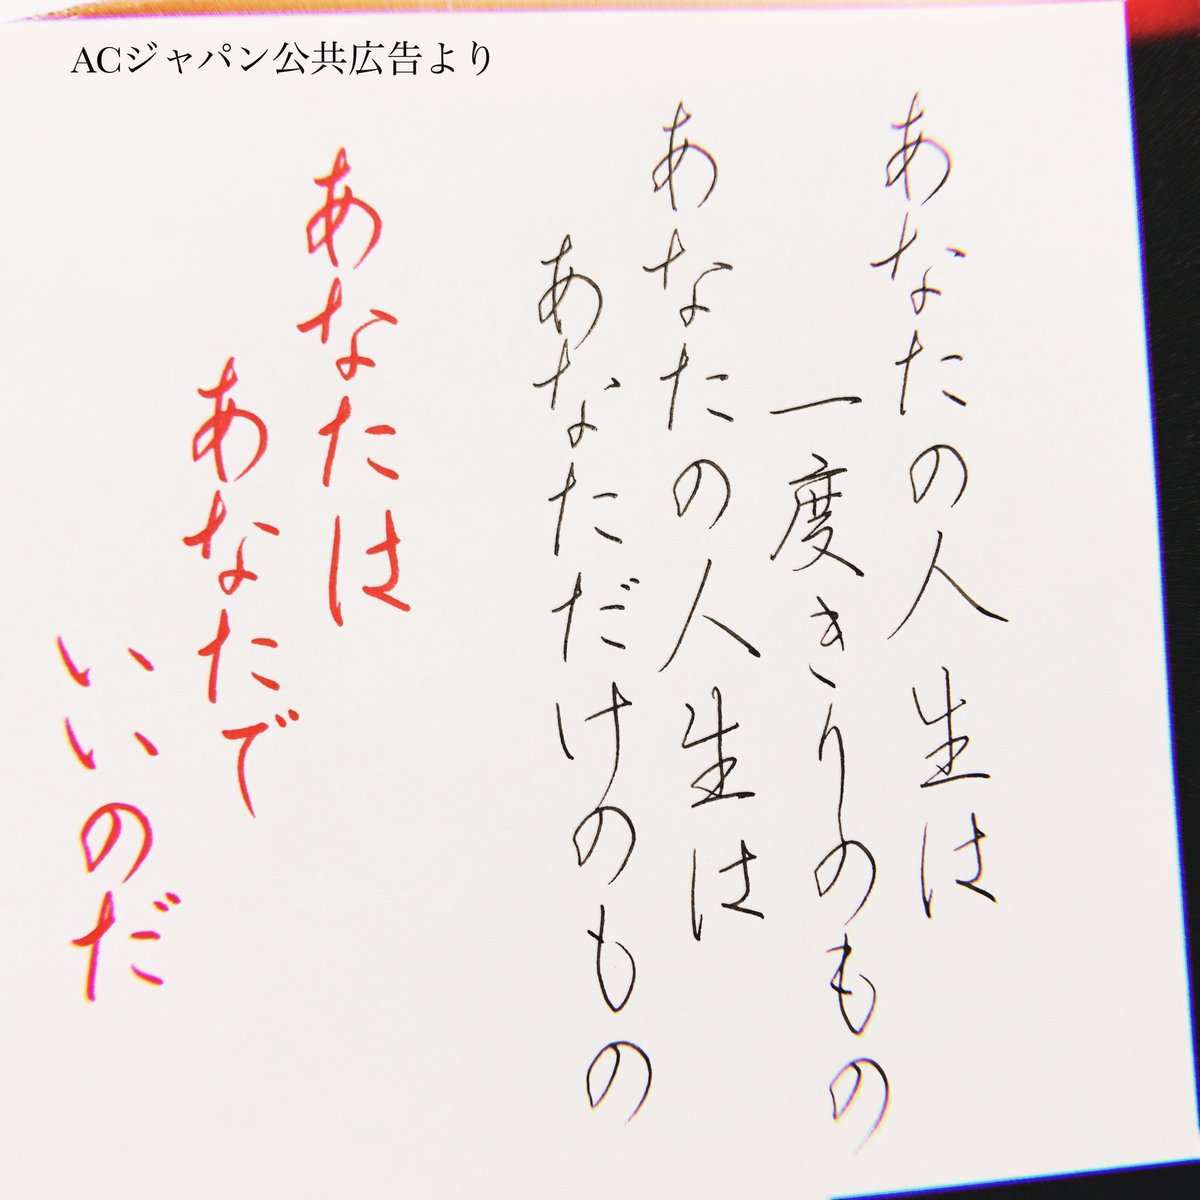 ACジャパン公共広告より
あなたの人生は
一度きりのもの
あなたの人生は
あなただけのもの
あなたは
あなたで
いいのだ